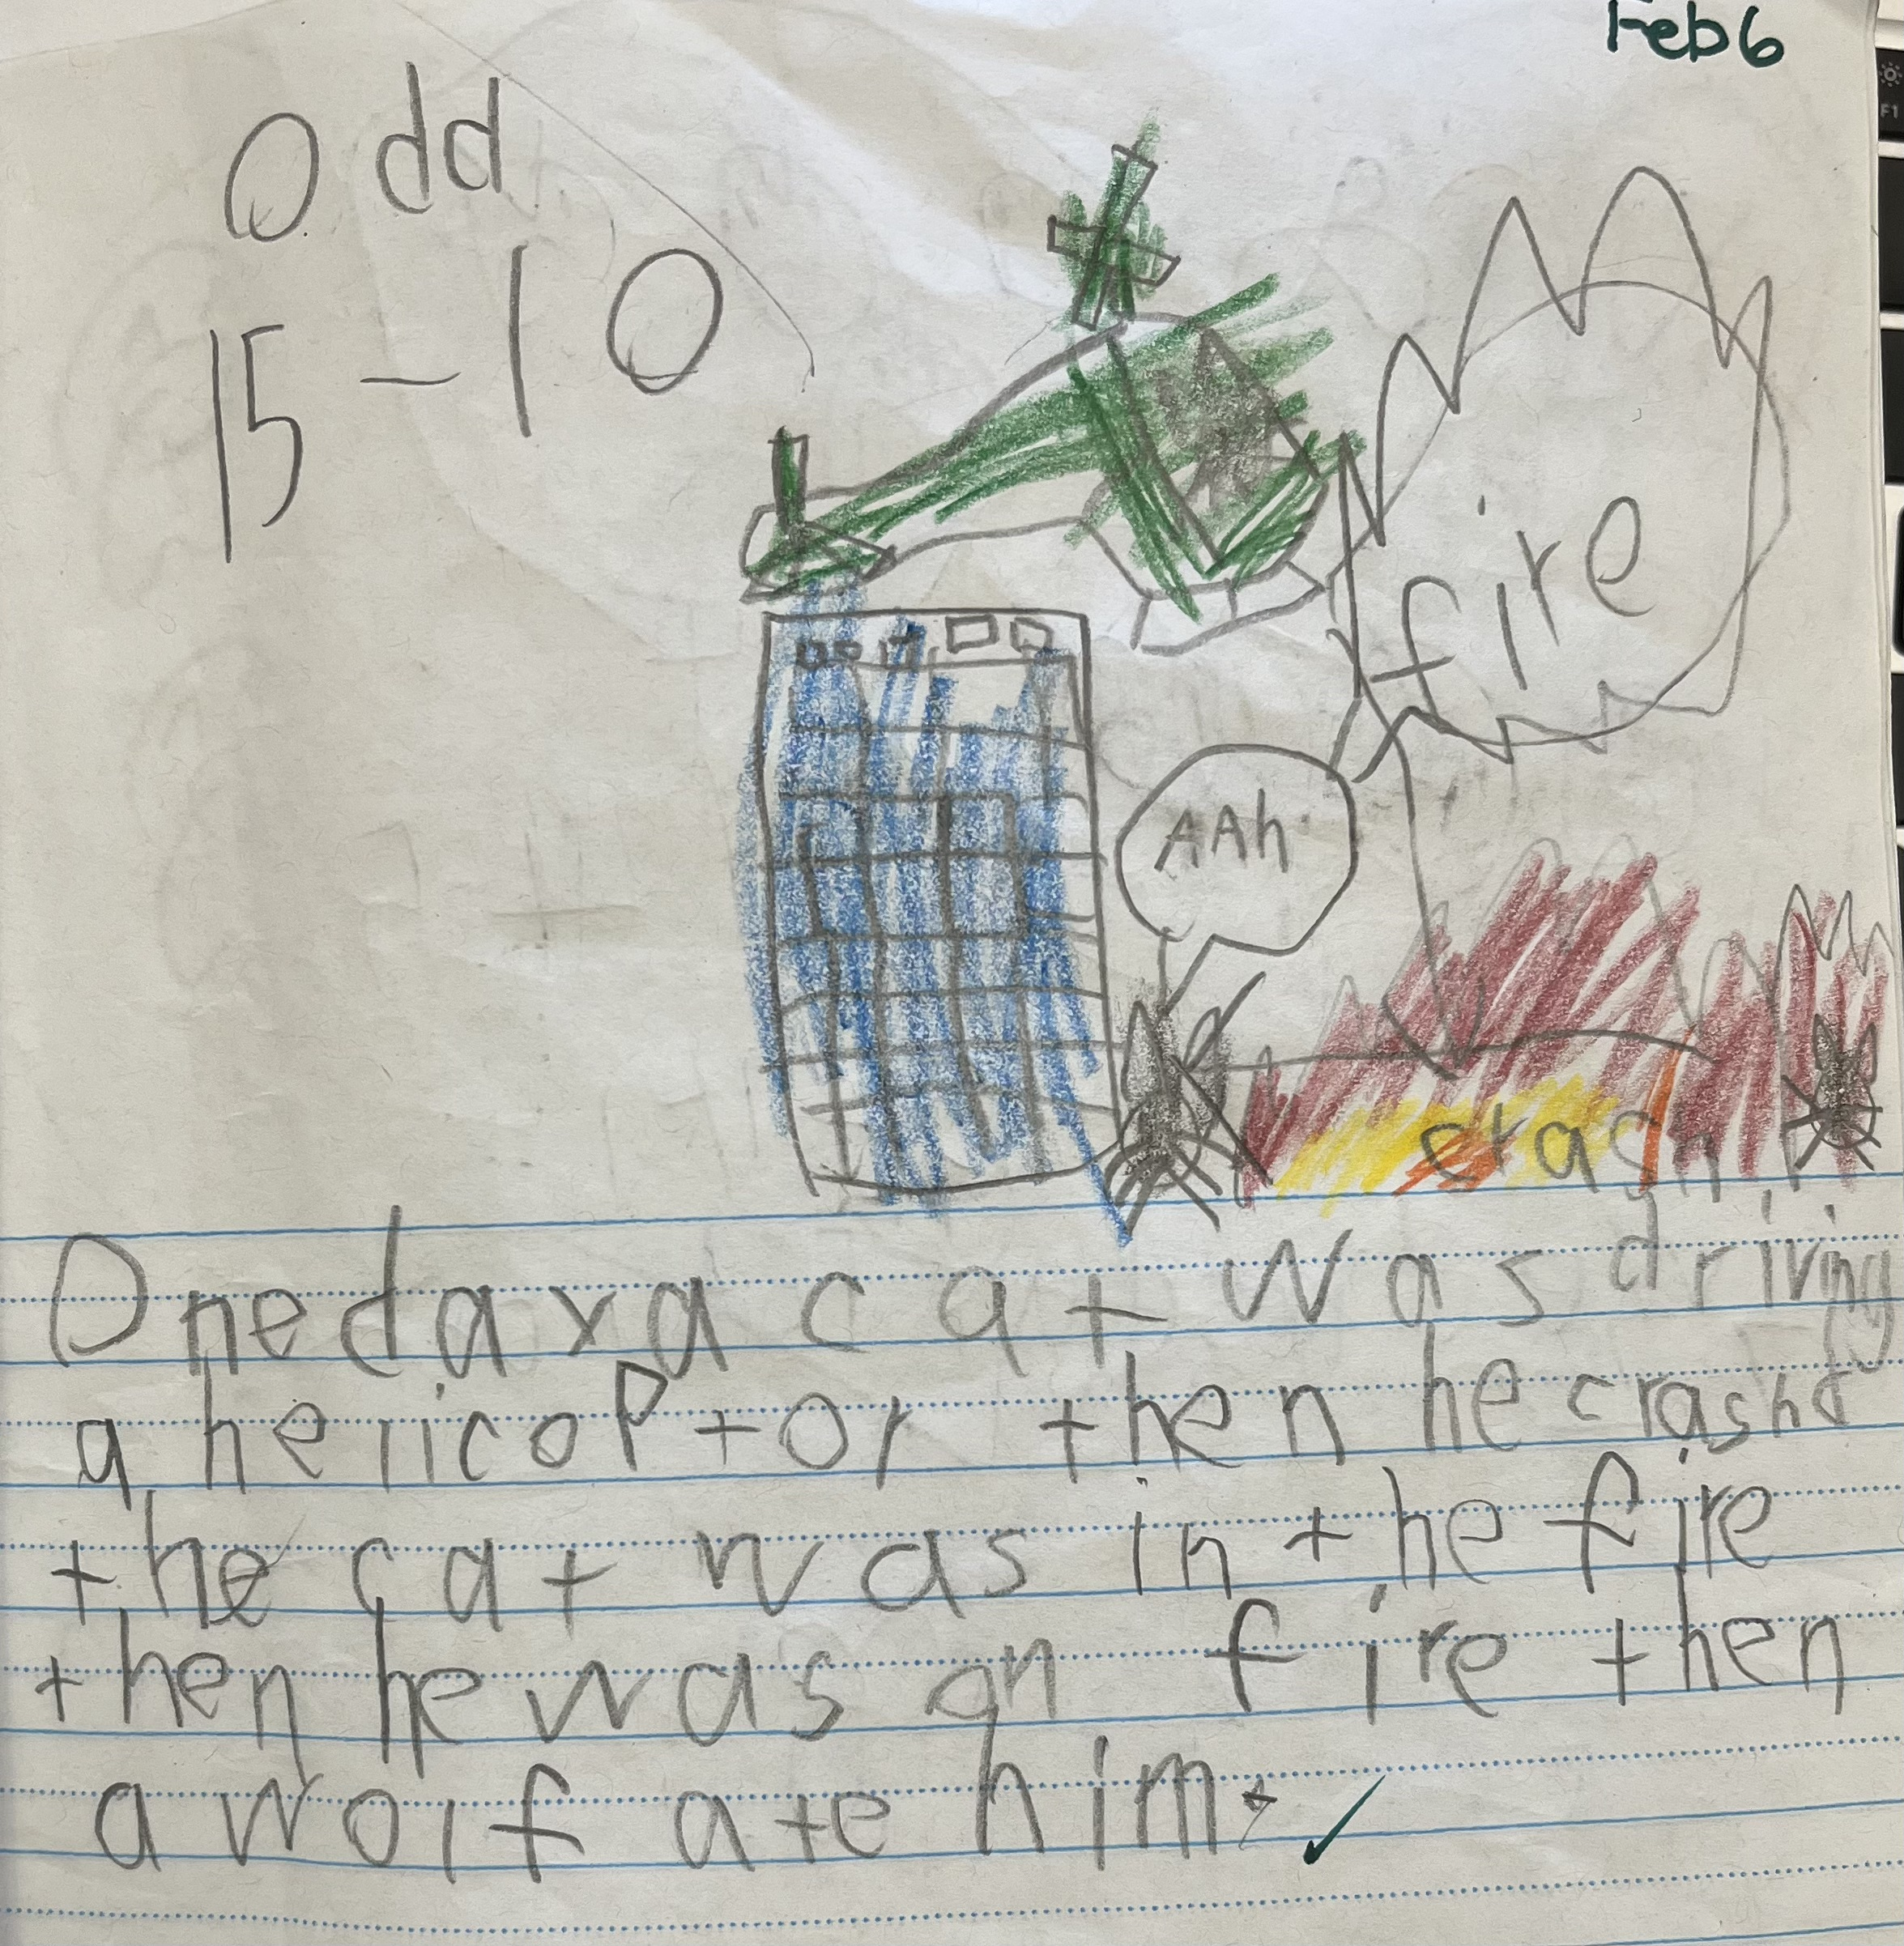 Feb 6
Odd
15-10
fire
AAh
crash
One day a cat was driving
a helicoptor then he crashd
the cat was in the fire
then he was on fire then
a wolf ate him.